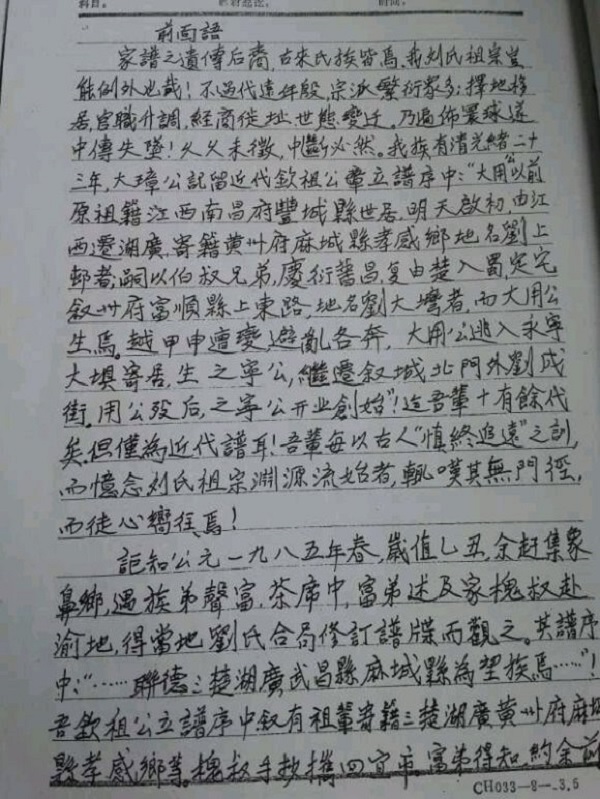 科目:
时间:
前面語
家譜之遺傳后裔,古來氏族皆焉,我刘氏祖宗豈
能例外也哉!不過代遠年段,宗派繁衍眾多;擇地移
居,官職升調,經商徙址,世態變迁,乃遍佈寰球遂
中傳失墜!久久未徵,中斷必然。我族有清光緒二十
三年,大璋公記留近代欽祖公輩立譜序中:“大用公以前
原祖籍江西南昌府豐城縣世居,明天啟初,由江
西遷湖廣,寄籍黄州府麻城縣孝感鄉地名劉上
郵者,嗣以伯叔兄弟,慶衍蕃昌,复由楚入蜀,定宅
叙州府富順縣上東路,地名劉大壪者,而大用公
生焉。越甲申遭變,避亂各奔,大用公逃入永寧
大埧寄居,生之寧公,繼遷叙城北門外劉成
街。用公殁后,之寧公开业創始”!迄吾輩十有餘代
矣。但僅為近代譜耳!吾輩每以古人“慎終追遠”之訓,
而憶念刘氏祖宗淵源流始者,輒嘆其無門徑,
而徒心嚮往焉!
詎知公元一九八五年春,歲值乙丑,余赶集象
鼻鄉,遇族弟聲富,茶席中,富弟述及家槐叔赴
渝地,得當地劉氏合局修訂譜牒而觀之。其譜序
中:“……聯德三楚湖廣武昌縣麻城縣為望族焉……”!
吾欽祖公立譜序中叙有祖輩寄籍三楚湖廣黄州府麻城
縣孝感鄉等。槐叔手抄攜回宜市。富弟得知,約余前
CH033-8-.3.5